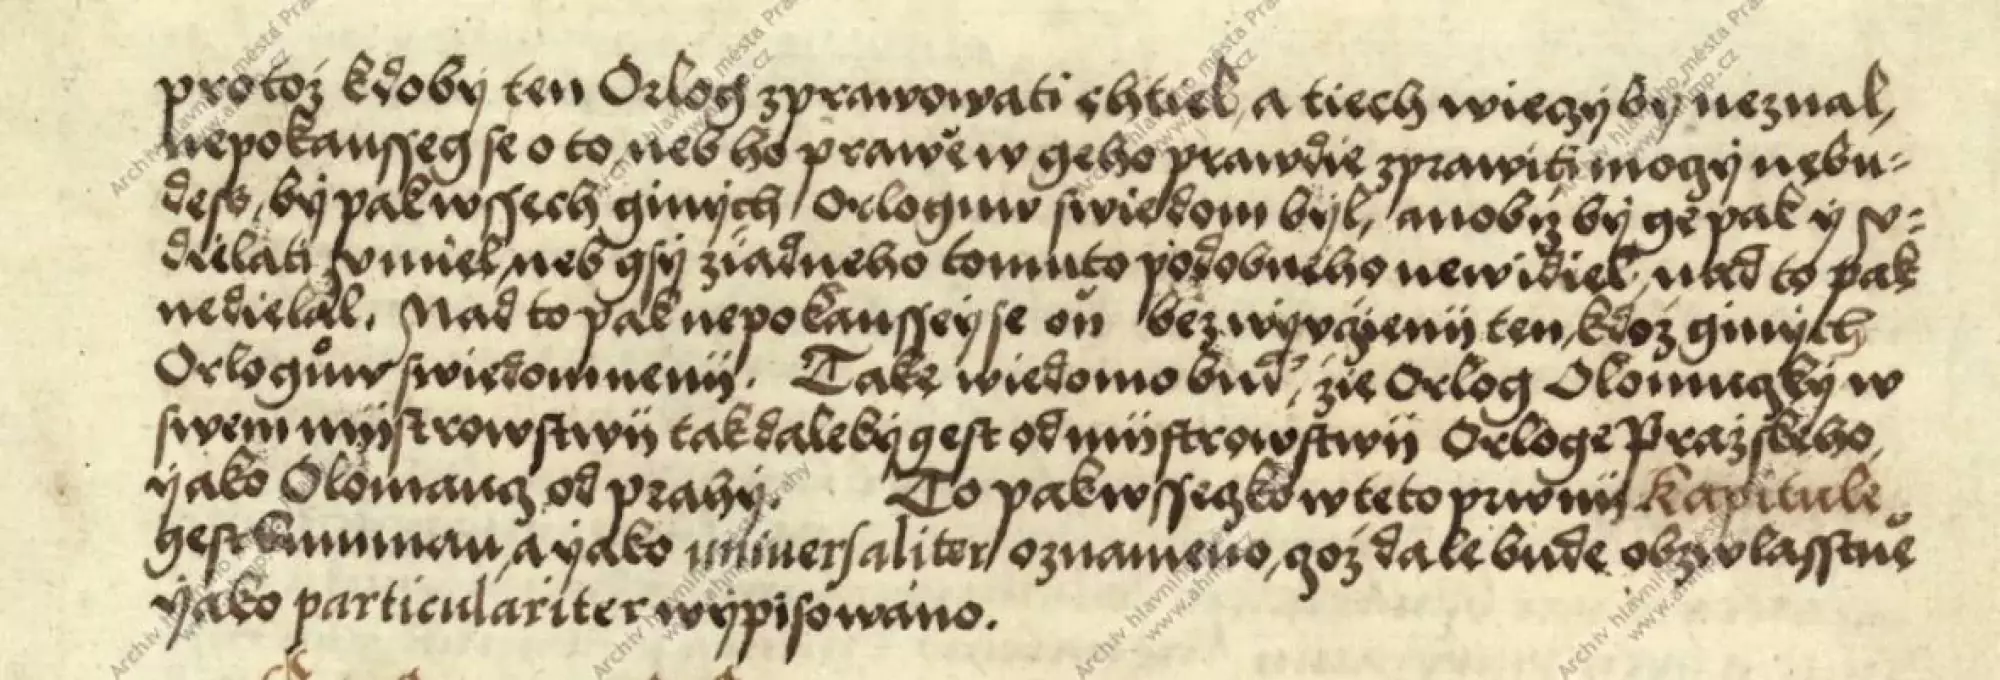 protož kdoby ten Orlog zprawowati chtiel, a tiech wieczy by neznal,
nepokausseg se o to, neb ho prawě w geho prawdie zprawiti moczy nebu-
dess, by pak wssech ginych Orloguw swiedom byl, anobrž by ge pak y v-
dielati vmiel, neb gsy žiadneho tomuto podobneho newidiel, nad to pak
nedielal. Nad to pak nepokaussey se oň bez wyvčzenij ten, kdož ginych
Orlogůw swiedom nenij. Take wiedomo buď, žie Orlog Olomuczky w
swem mijstrowstwij tak daleky gest od mijstrowstwij Orloge Pražskeho,
yako Olomaucz od prahy. To pak wsseczko w teto prwnij Kapitule
gest summau, a yako universaliter oznameno, czož dale bude obzwlasstně
yako particulariter wypisowano.
Archiv hlavního města Prahy
www.ahmp.cz